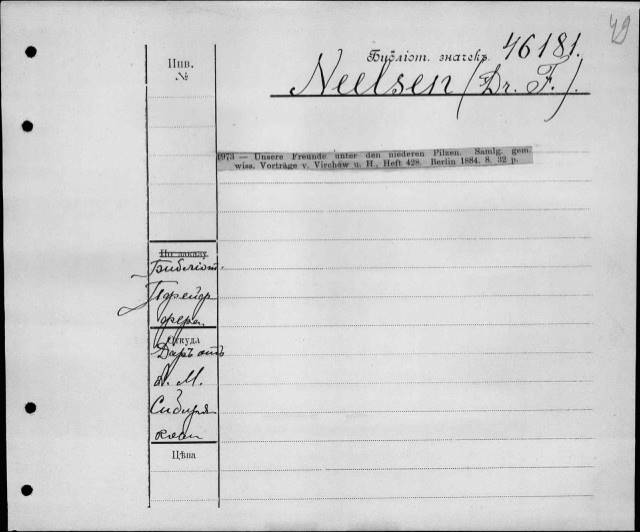 49
Библіот. значекъ 46181.
Инв.
№
Neelsen (Dr. F.).
1973 — Unsere Freunde unter den niederen Pilzen. Samlg. gem.
wiss. Vorträge v. Virchow u. H., Heft 428. Berlin 1884. 8. 32 p.
По заказу
Библіот.
Откуда
Даръ отъ
А. М.
Сибиря
кова
Цѣна